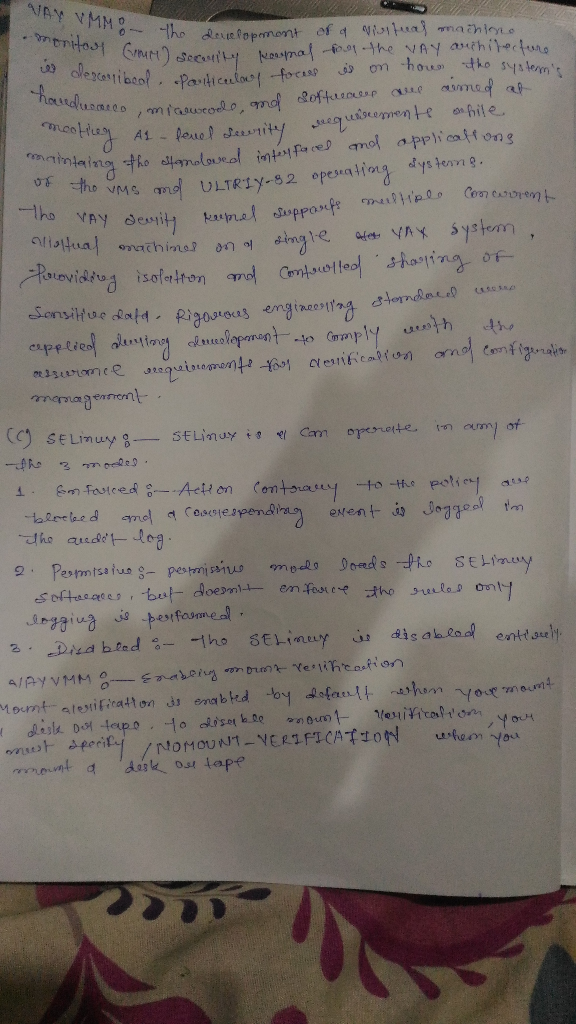 VAX VMM :- The development of a virtual machine
monitor (VMM) security kernal for the VAX architecture
is described. Particular focus is on how the system's
hardware, microcode, and software are aimed at
meeting A1-level security requirements while
maintaing the standard interfaces and applications
of the VMS and ULTRIX-32 operating systems.
The VAX security kernel supports multiple concurrent
virtual machines on a single VAX system,
Providing isolation and controlled sharing of
sensitive data. Rigorous engineering standard were
applied during development to comply with the
assurance requirements for verification and configuration
management.
(C) SELinux :- SELinux is can operate in any of
the 3 modes.
1. Enforced :- Action contrary to the policy are
blocked and a corresponding event is logged in
the audit log.
2. Permissive :- permissive mode loads the SELinux
software, but doesn't enforce the rules only
logging is performed.
3. Disabled :- The SELinux is disabled entirely.
VAX VMM :- Enabling mount verification
Mount verification is enabled by default when you mount
disk or tape. to disable mount verification, you
must specify /NOMOUNT-VERIFICATION when you
mount a disk or tape